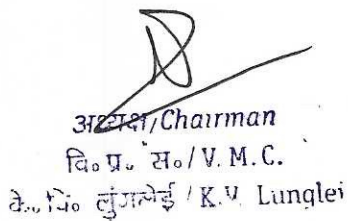 अध्यक्ष/Chairman
वि० प्र० स०/V. M. C.
के० वि० लुंगलेई / K.V. Lunglei